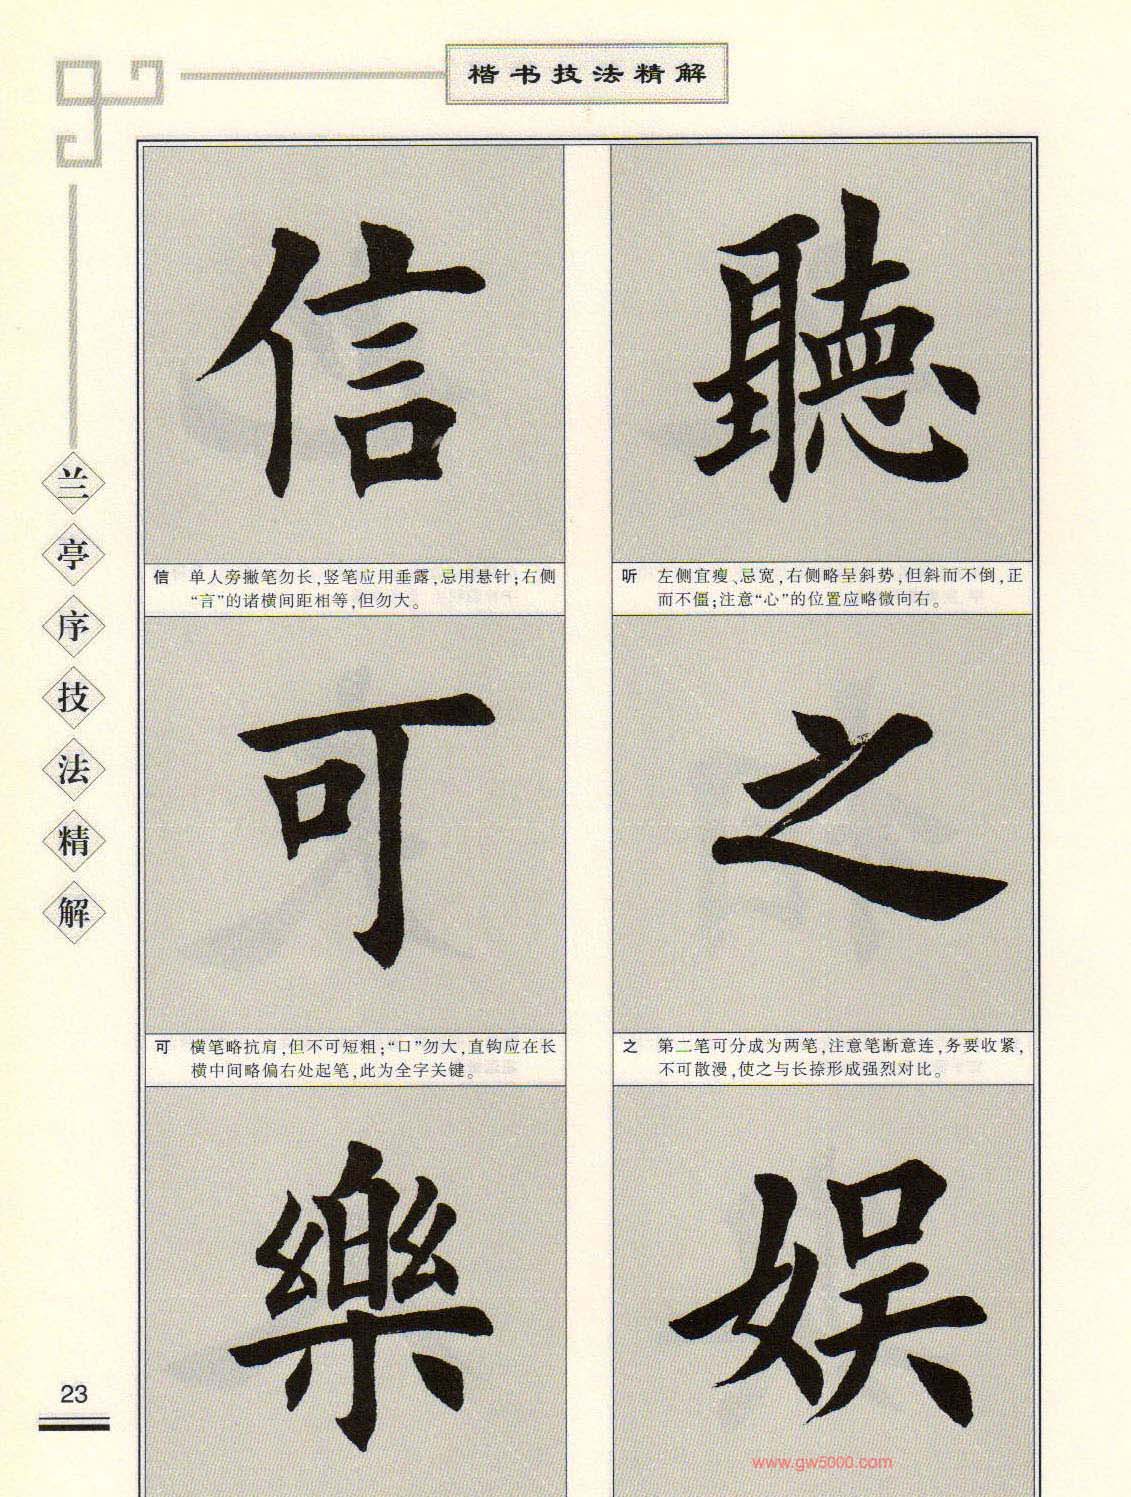 楷书技法精解
兰亭序技法精解
聽
信
听 左侧宜瘦、忌宽,右侧略呈斜势,但斜而不倒,正
而不僵;注意“心”的位置应略微向右。
信 单人旁撇笔勿长,竖笔应用垂露,忌用悬针;右侧
“言”的诸横间距相等,但勿大。
之
可
之 第二笔可分成为两笔,注意笔断意连,务要收紧,
不可散漫,使之与长捺形成强烈对比。
可 横笔略抗肩,但不可短粗;“口”勿大,直钩应在长
横中间略偏右处起笔,此为全字关键。
娱
樂
23
www.gw5000.com